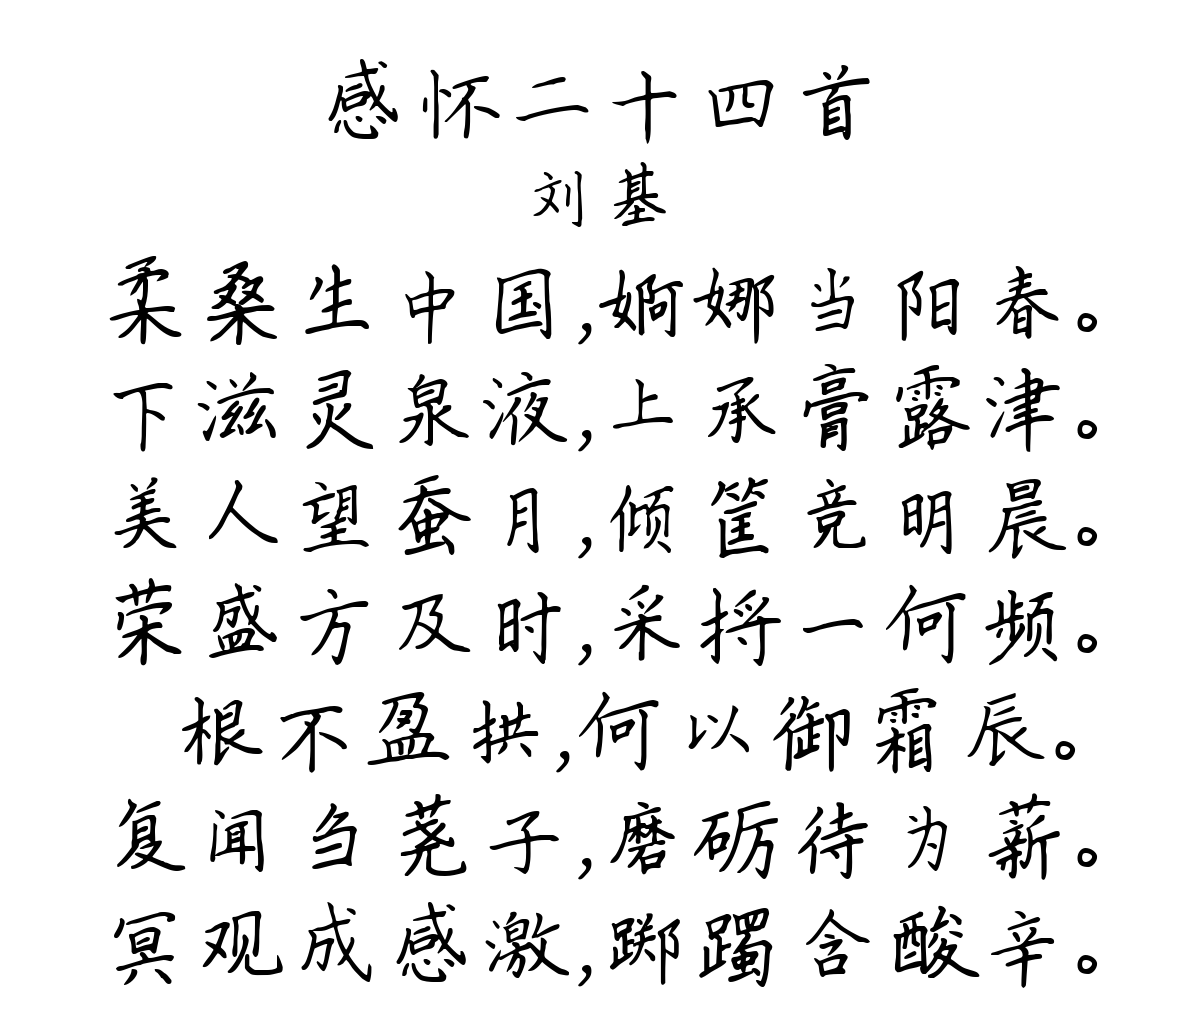 感怀二十四首
刘基
柔桑生中国,婀娜当阳春。
下滋灵泉液,上承膏露津。
美人望蚕月,倾筐竞明晨。
荣盛方及时,采捋一何频。
根不盈拱,何以御霜辰。
复闻刍荛子,磨砺待为薪。
冥观成感激,踯躅含酸辛。